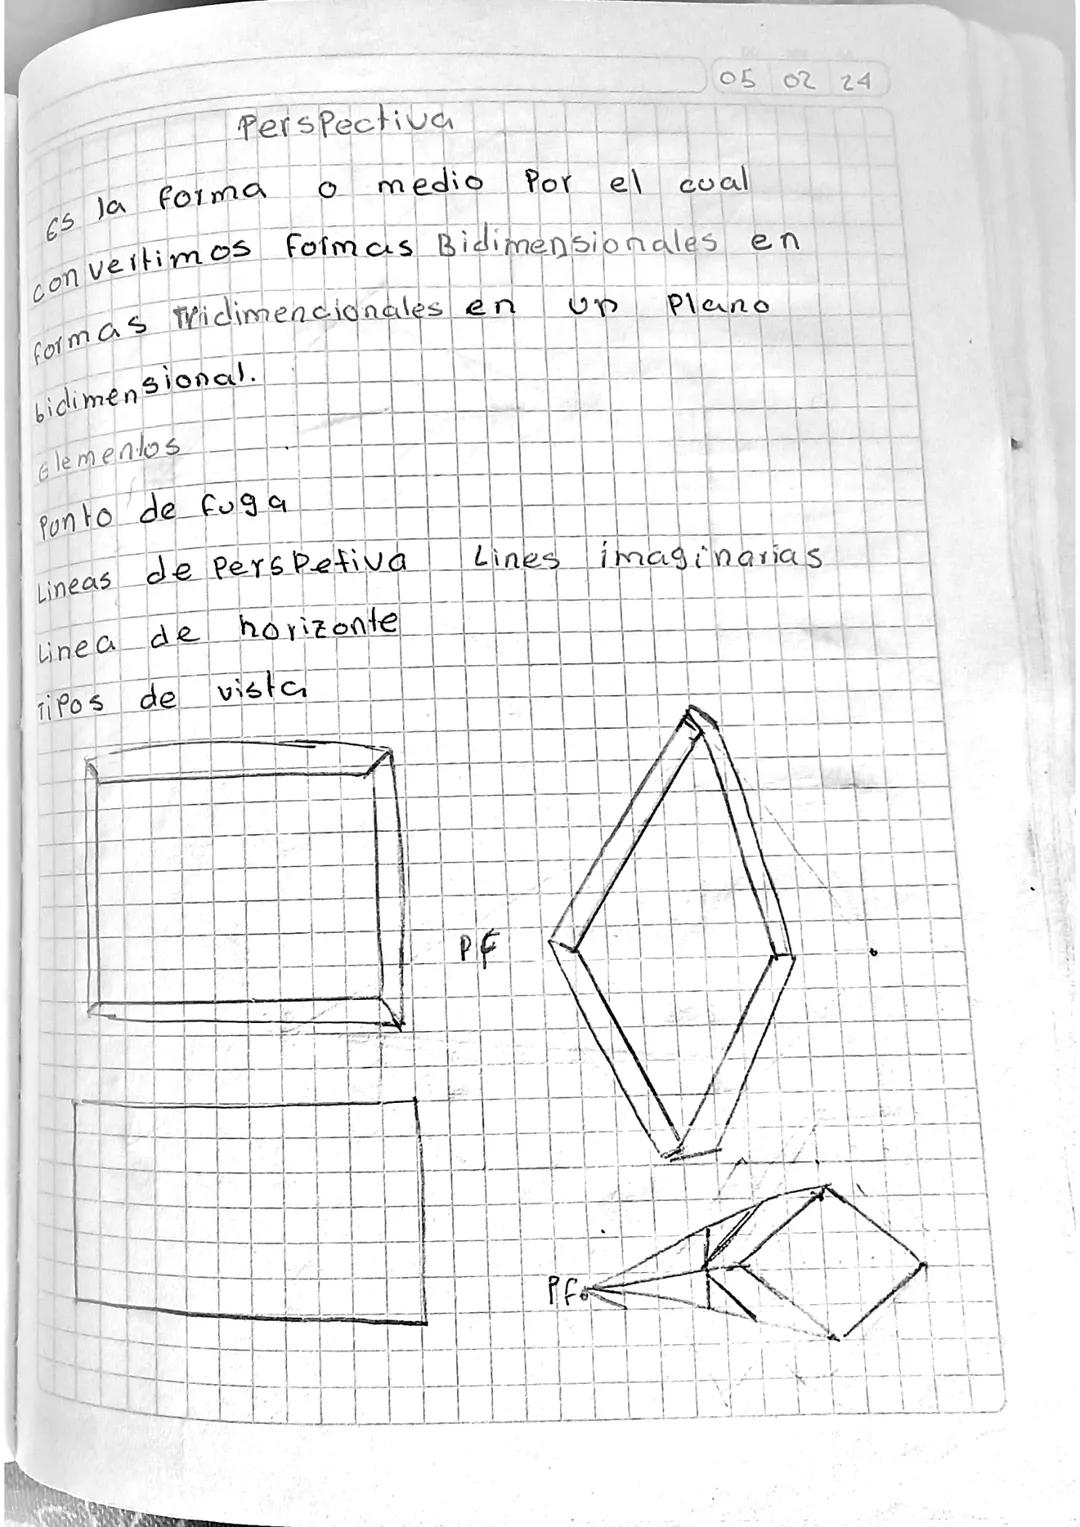 05 02 24
Perspectiva
Es la forma o medio Por el cual
convertimos formas Bidimensionales en
formas tridimencionales en un Plano
bidimensional.
Elementos
Punto de fuga
Lineas de Perspetiva Lines imaginarias
Linea de horizonte
Tipos de vista
PF
PF